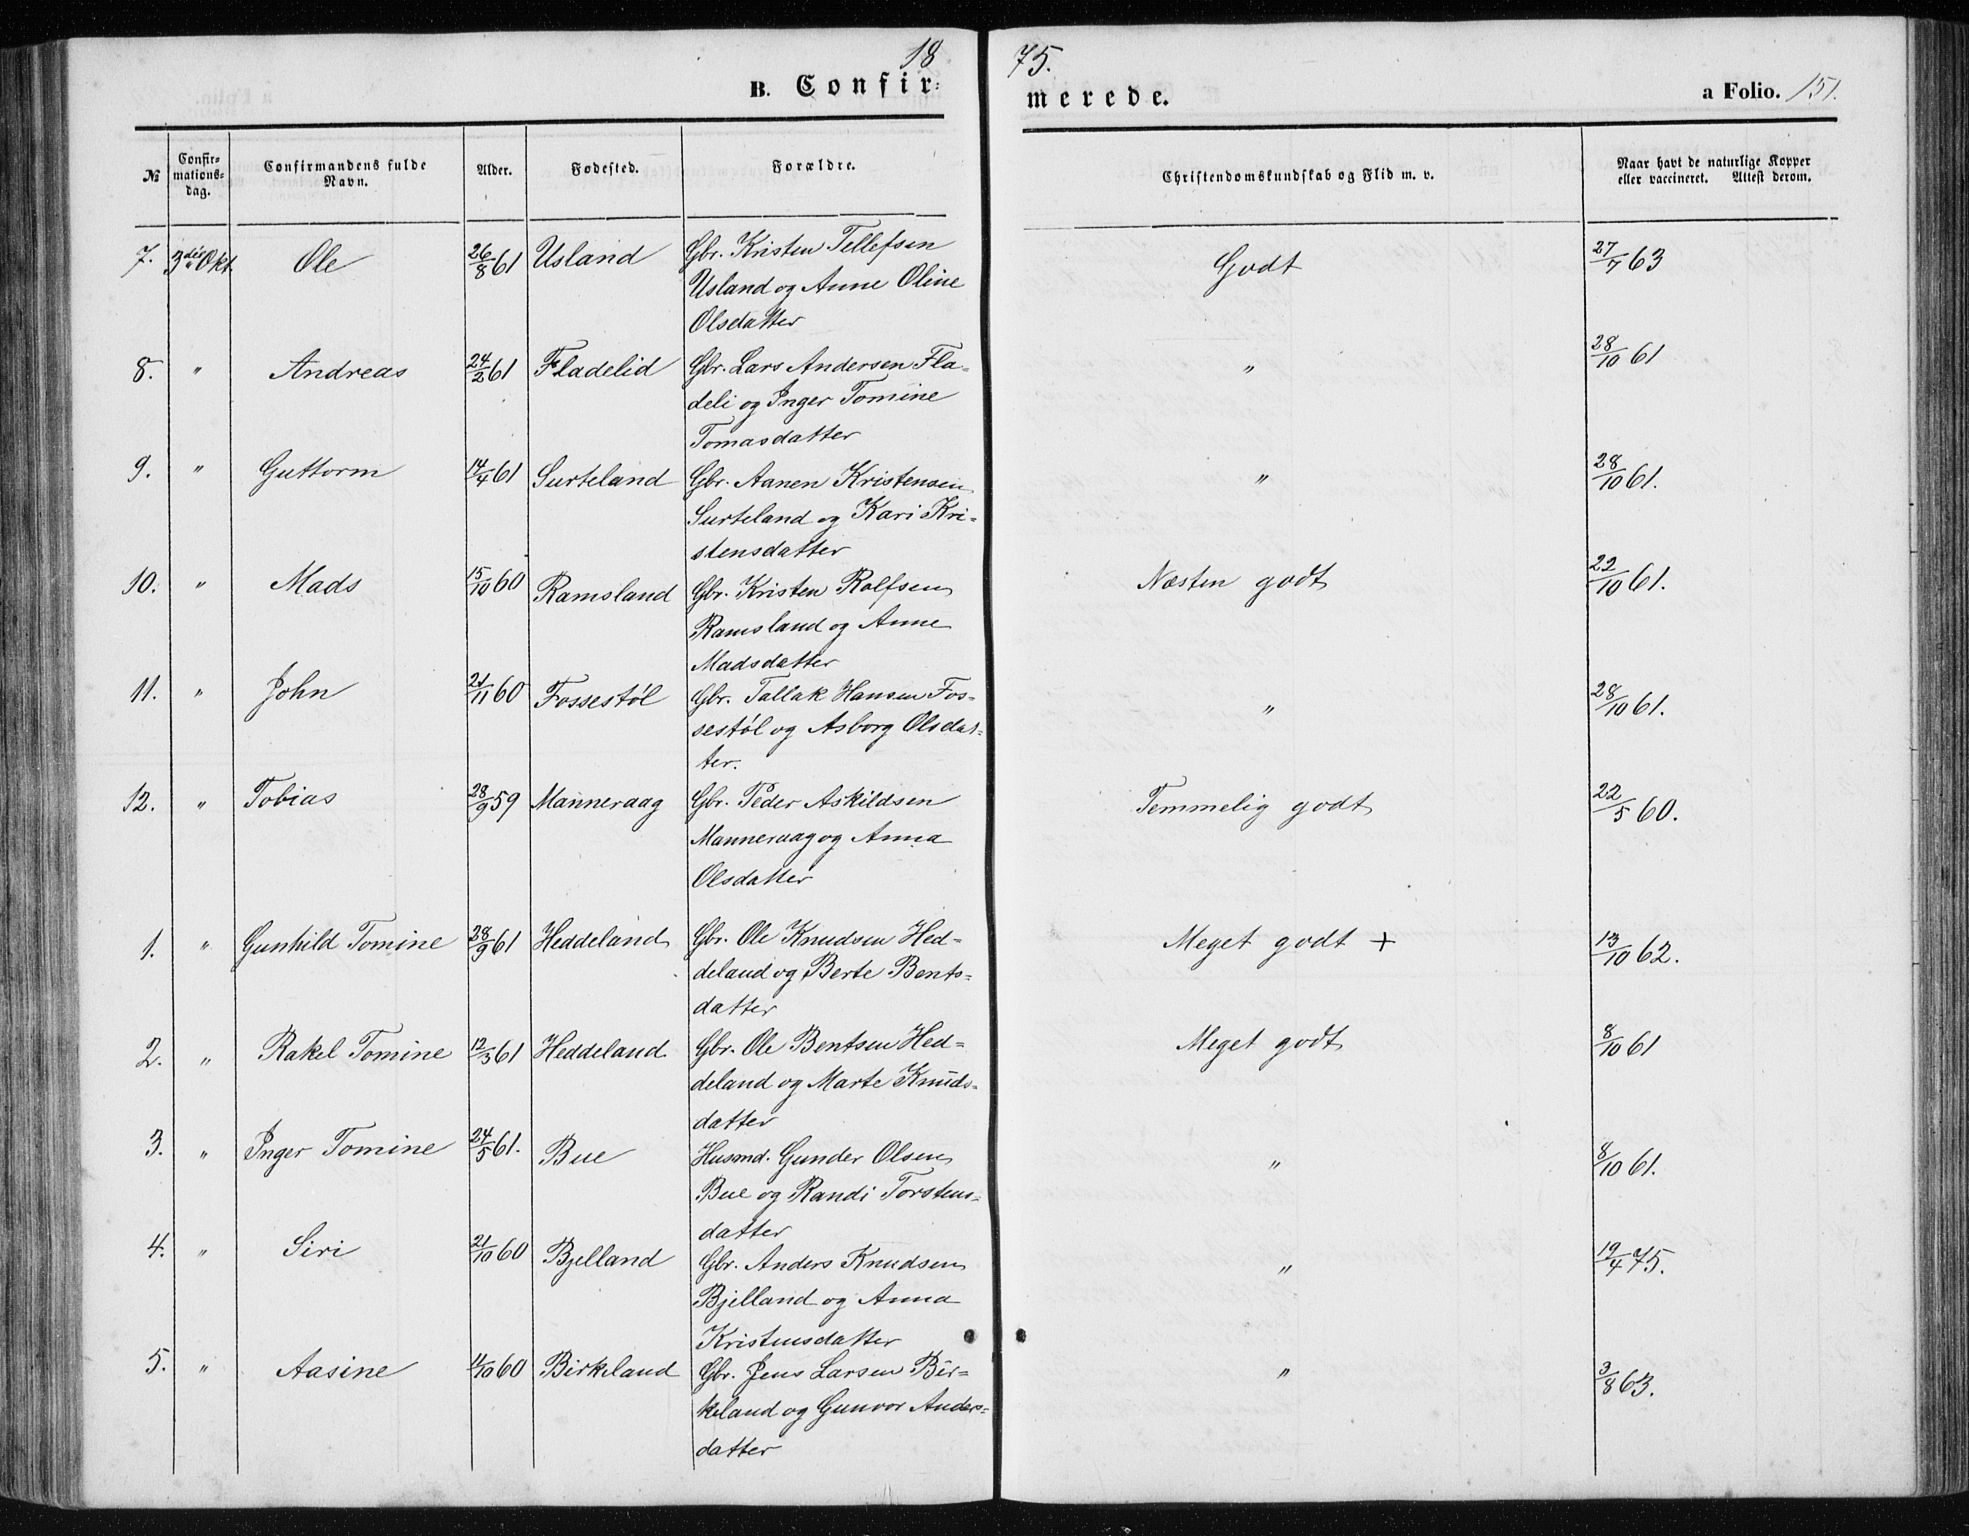 1875.
B. Confirmerede.
a Folio. 151.
№
Confirmationsdag.
Confirmandens fulde Navn.
Alder.
Fødested.
Forældre.
Christendomskundskab og Flid m. v.
Naar havt de naturlige Kopper eller vaccineret. Attest derom.
7. 3die Okt. Ole 26/8 61 Usland Gbr. Kristen Tellefsen Godt 27/7 63
Usland og Anne Oline
Olsdatter
8. " Andreas 24/2 61 Fladelid Gbr. Lars Andersen Fla- " 28/10 61
deli og Inger Tomine
Tomasdatter
9. " Guttorm 14/4 61 Surteland Gbr. Aanen Kristensen " 28/10 61.
Surteland og Kari Kri-
stensdatter
10. " Mads 15/10 60 Ramsland Gbr. Kristen Rolfsen Næsten godt 22/10 61.
Ramsland og Anne
Madsdatter
11. " John 21/11 60 Fossestøl Gbr. Tallak Hansen Fos- " 28/10 61.
sestøl og Asborg Olsdat-
ter.
12. " Tobias 28/9 59 Manneraag Gbr. Peder Askildsen Temmelig godt 22/5 60.
Manneraag og Anna
Olsdatter
1. " Gunhild Tomine 28/9 61 Heddeland Gbr. Ole Knudsen Hed- Meget godt + 13/10 62.
deland og Berte Bents-
datter
2. " Rakel Tomine 12/3 61 Heddeland Gbr. Ole Bentsen Hed- Meget godt 8/10 61
deland og Marte Knuds-
datter
3. " Inger Tomine 24/5 61. Bue Husmd. Gunder Olsen " 8/10 61.
Bue og Randi Torstens-
datter
4. " Siri 21/10 60 Bjelland Gbr. Anders Knudsen " 19/4 75.
Bjelland og Anna
Kristensdatter
5. " Aasine 4/10 60 Birkeland Gbr. Jens Larsen Bir- " 3/8 63.
keland og Gunvor Anders-
datter